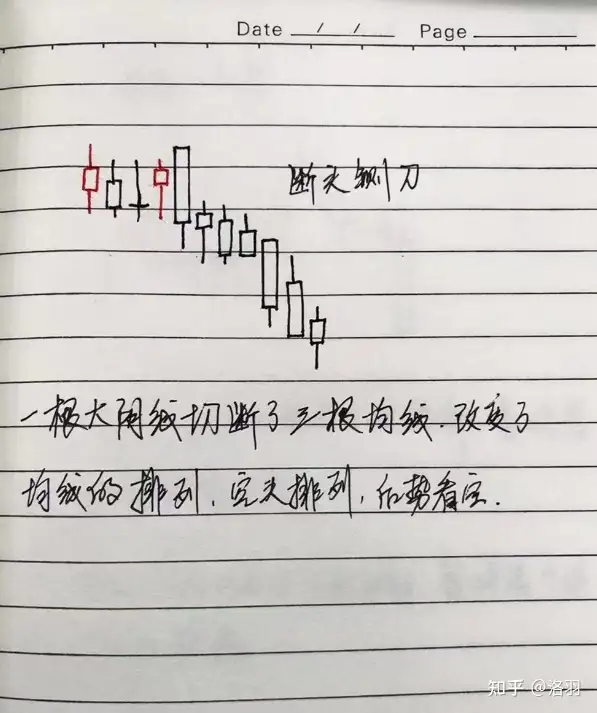 Date / / Page
断头铡刀
一根大阴线切断了三根均线.改变了
均线的排列,空头排列,后势看空.
知乎 @洛羽